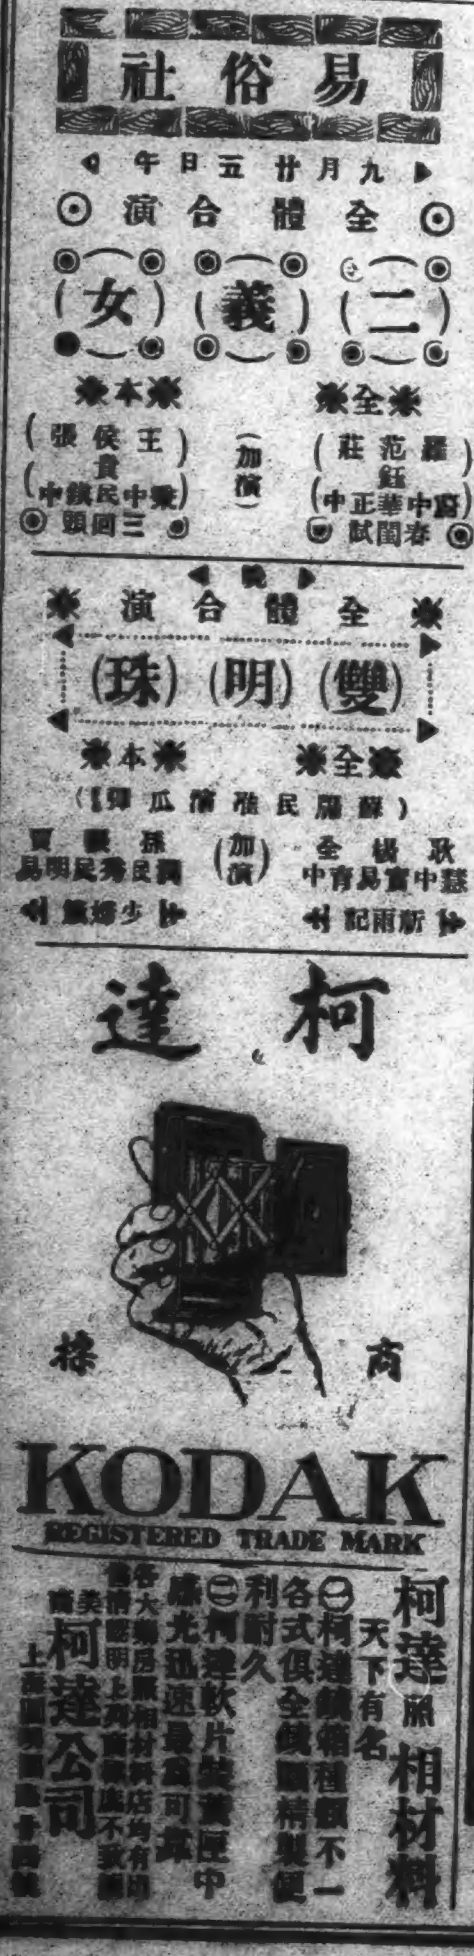 易俗社
九月廿五日午
全體合演
二義女
全本
羅 范鈺 莊
中華正中
春閨試
加演
王 侯貴 張
中民鎮中
三回頭
晚
全體合演
雙明珠
全本
蘇
民
演瓜
耿 楊 全
慧中實易育中
新雨記
加演
孫 賈
潤民秀民明易
少婦鏡
柯達
商標
KODAK
REGISTERED TRADE MARK
柯達照相材料
天下有名
㊀柯達鏡箱種類不一
各式俱全鏡頭精製便
利耐久
㊁柯達軟片裝黃匣中
感光迅速最為可靠
各大藥房照相材料店均有出
美商柯達公司
上海圓明園路